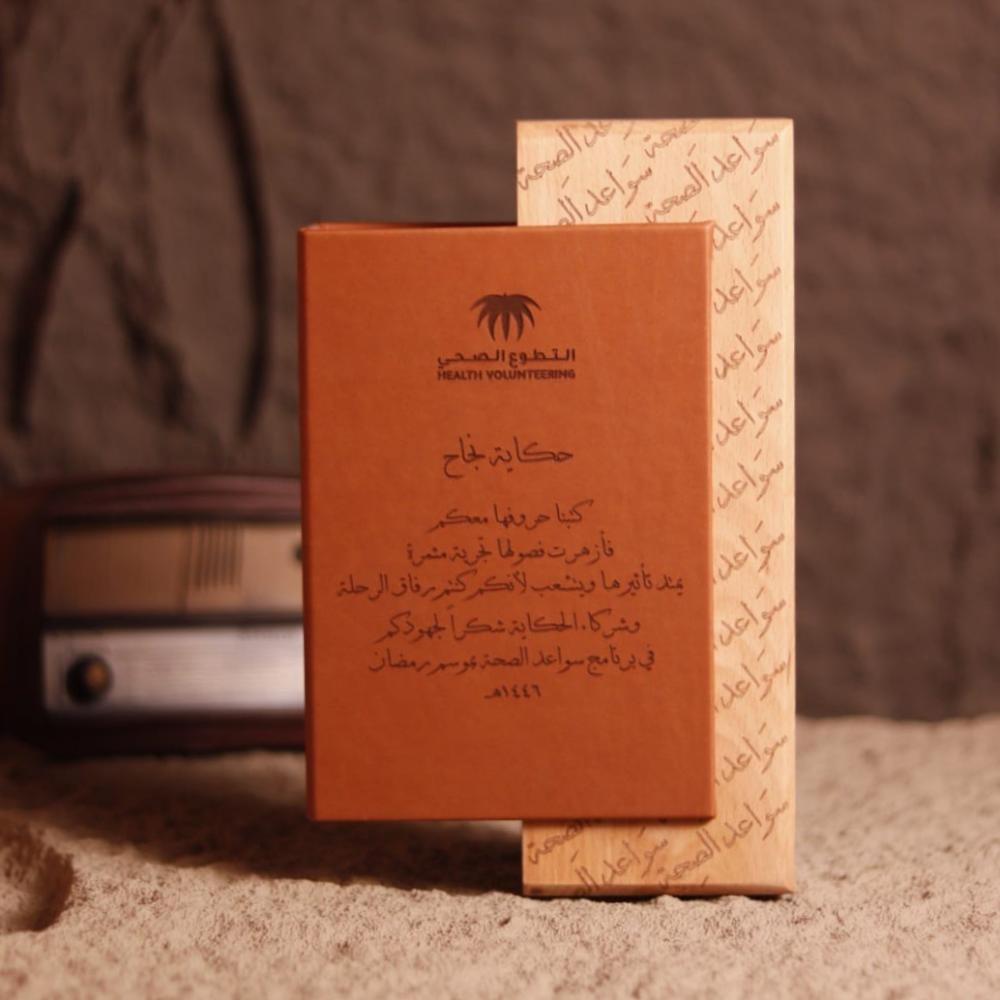 التطوع الصحي
HEALTH VOLUNTEERING
حكاية نجاح
كتبنا حروفها معكم
فأزهرت فصولها تجربة مثمرة
يمتد تأثيرها ويتشعب لأنكم كنتم رفاق الرحلة
وشركاء الحكاية شكراً لجهودكم
في برنامج سواعد الصحة بموسم رمضان
١٤٤٦هـ
سواعد الصحة
سواعد الصحة
سواعد
سواعد
سواعد
سواعد
سواعد
سواعد
سواعد
سواعد
سواعد
سواعد الصحة
سواعد الصحة